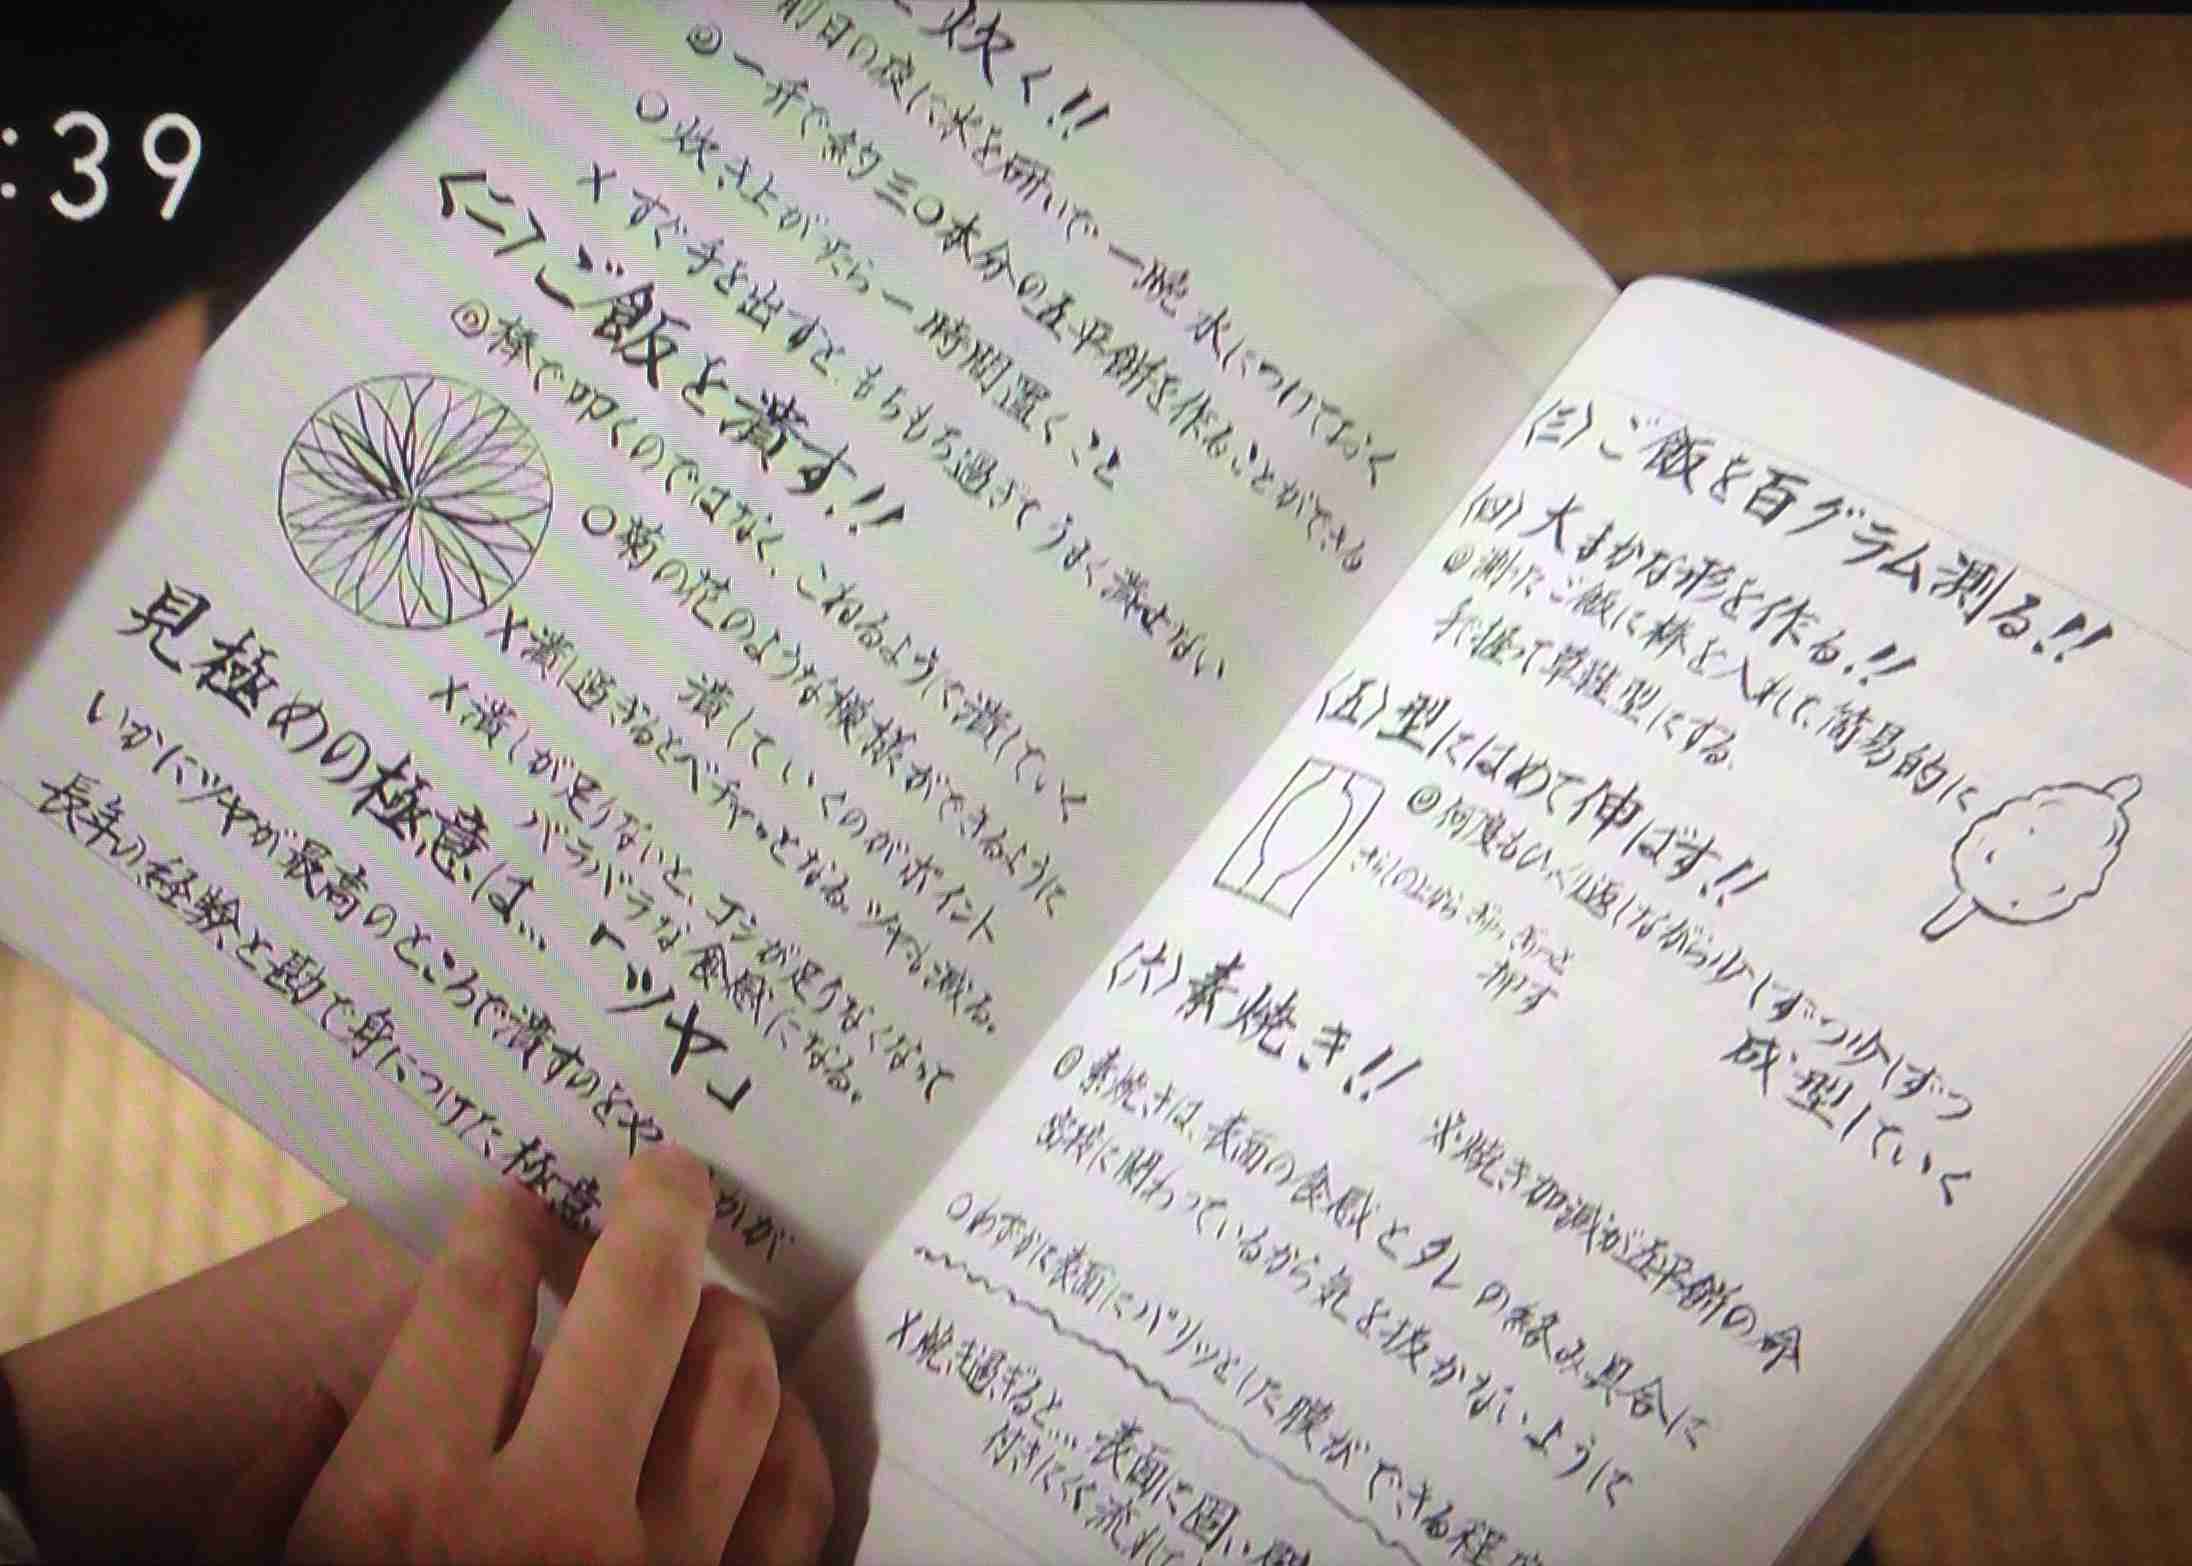 :39
炊く!!
前日の夜に水を研いで一晩水につけておく
◎一升で約三〇本分の五平餅を作ることができる
○炊き上がったら一時間置くこと
×すぐ手を出すと、もちもち過ぎてうまく潰せない
〈二〉ご飯を潰す!!
◎棒で叩くのではなく、こねるように潰していく
○菊の花のような模様ができるように
潰していくのがポイント
×潰し過ぎるとベチャっとなる。ツヤも減る。
×潰しが足りないと、コシが足りなくなって
バラバラな食感になる。
見極めの極意は…「ツヤ」
いかにツヤが最高のところで潰すのをや かが
長年の経験と勘で身につけた極意
〈三〉ご飯を百グラム測る!!
〈四〉大まかな形を作る!!
◎測たご飯に棒を入れて、簡易的に
手で握って草鞋型にする。
〈五〉型にはめて伸ばす!!
◎何度もひっくり返しながら少しずつ少しずつ
成型していく
さらしの上からぎゅっぎゅっと
押す
〈六〉素焼き!! ※焼き加減が五平餅の命
◎素焼きは、表面の食感とタレの絡み具合に
密接に関わっているから気を抜かないように
○わずかに表面にパリッとした膜ができる程
×焼き過ぎると… 表面に固い
付きにくく流れて